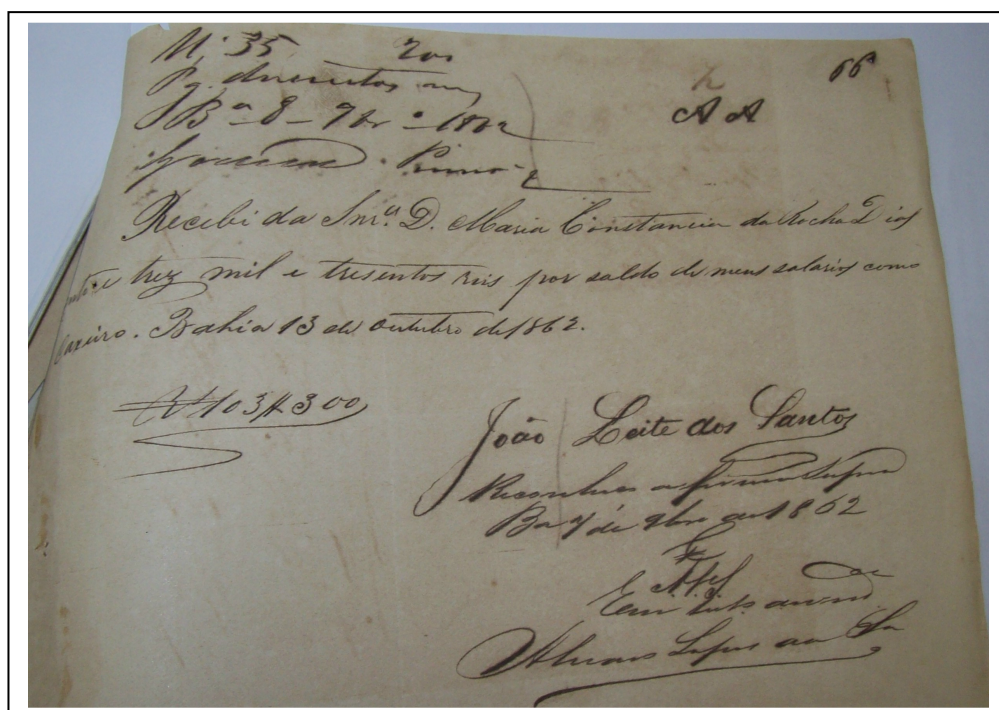 N.º 35 200
Pg. duzentos reis
Bª 8 9br.º 1862
66
A A
Recebi da Snrª. D. Maria Constancia da Rocha Dias
trez mil e tresentos reis por saldo de meus salarios como
Caxeiro. Bahia 13 de Outubro de 1862.
103#300
João Leite dos Santos
Reconheço a firma supra
Ba 7 de 9bro de 1862
Em testo de verde
Alvaro Lopes da Sa